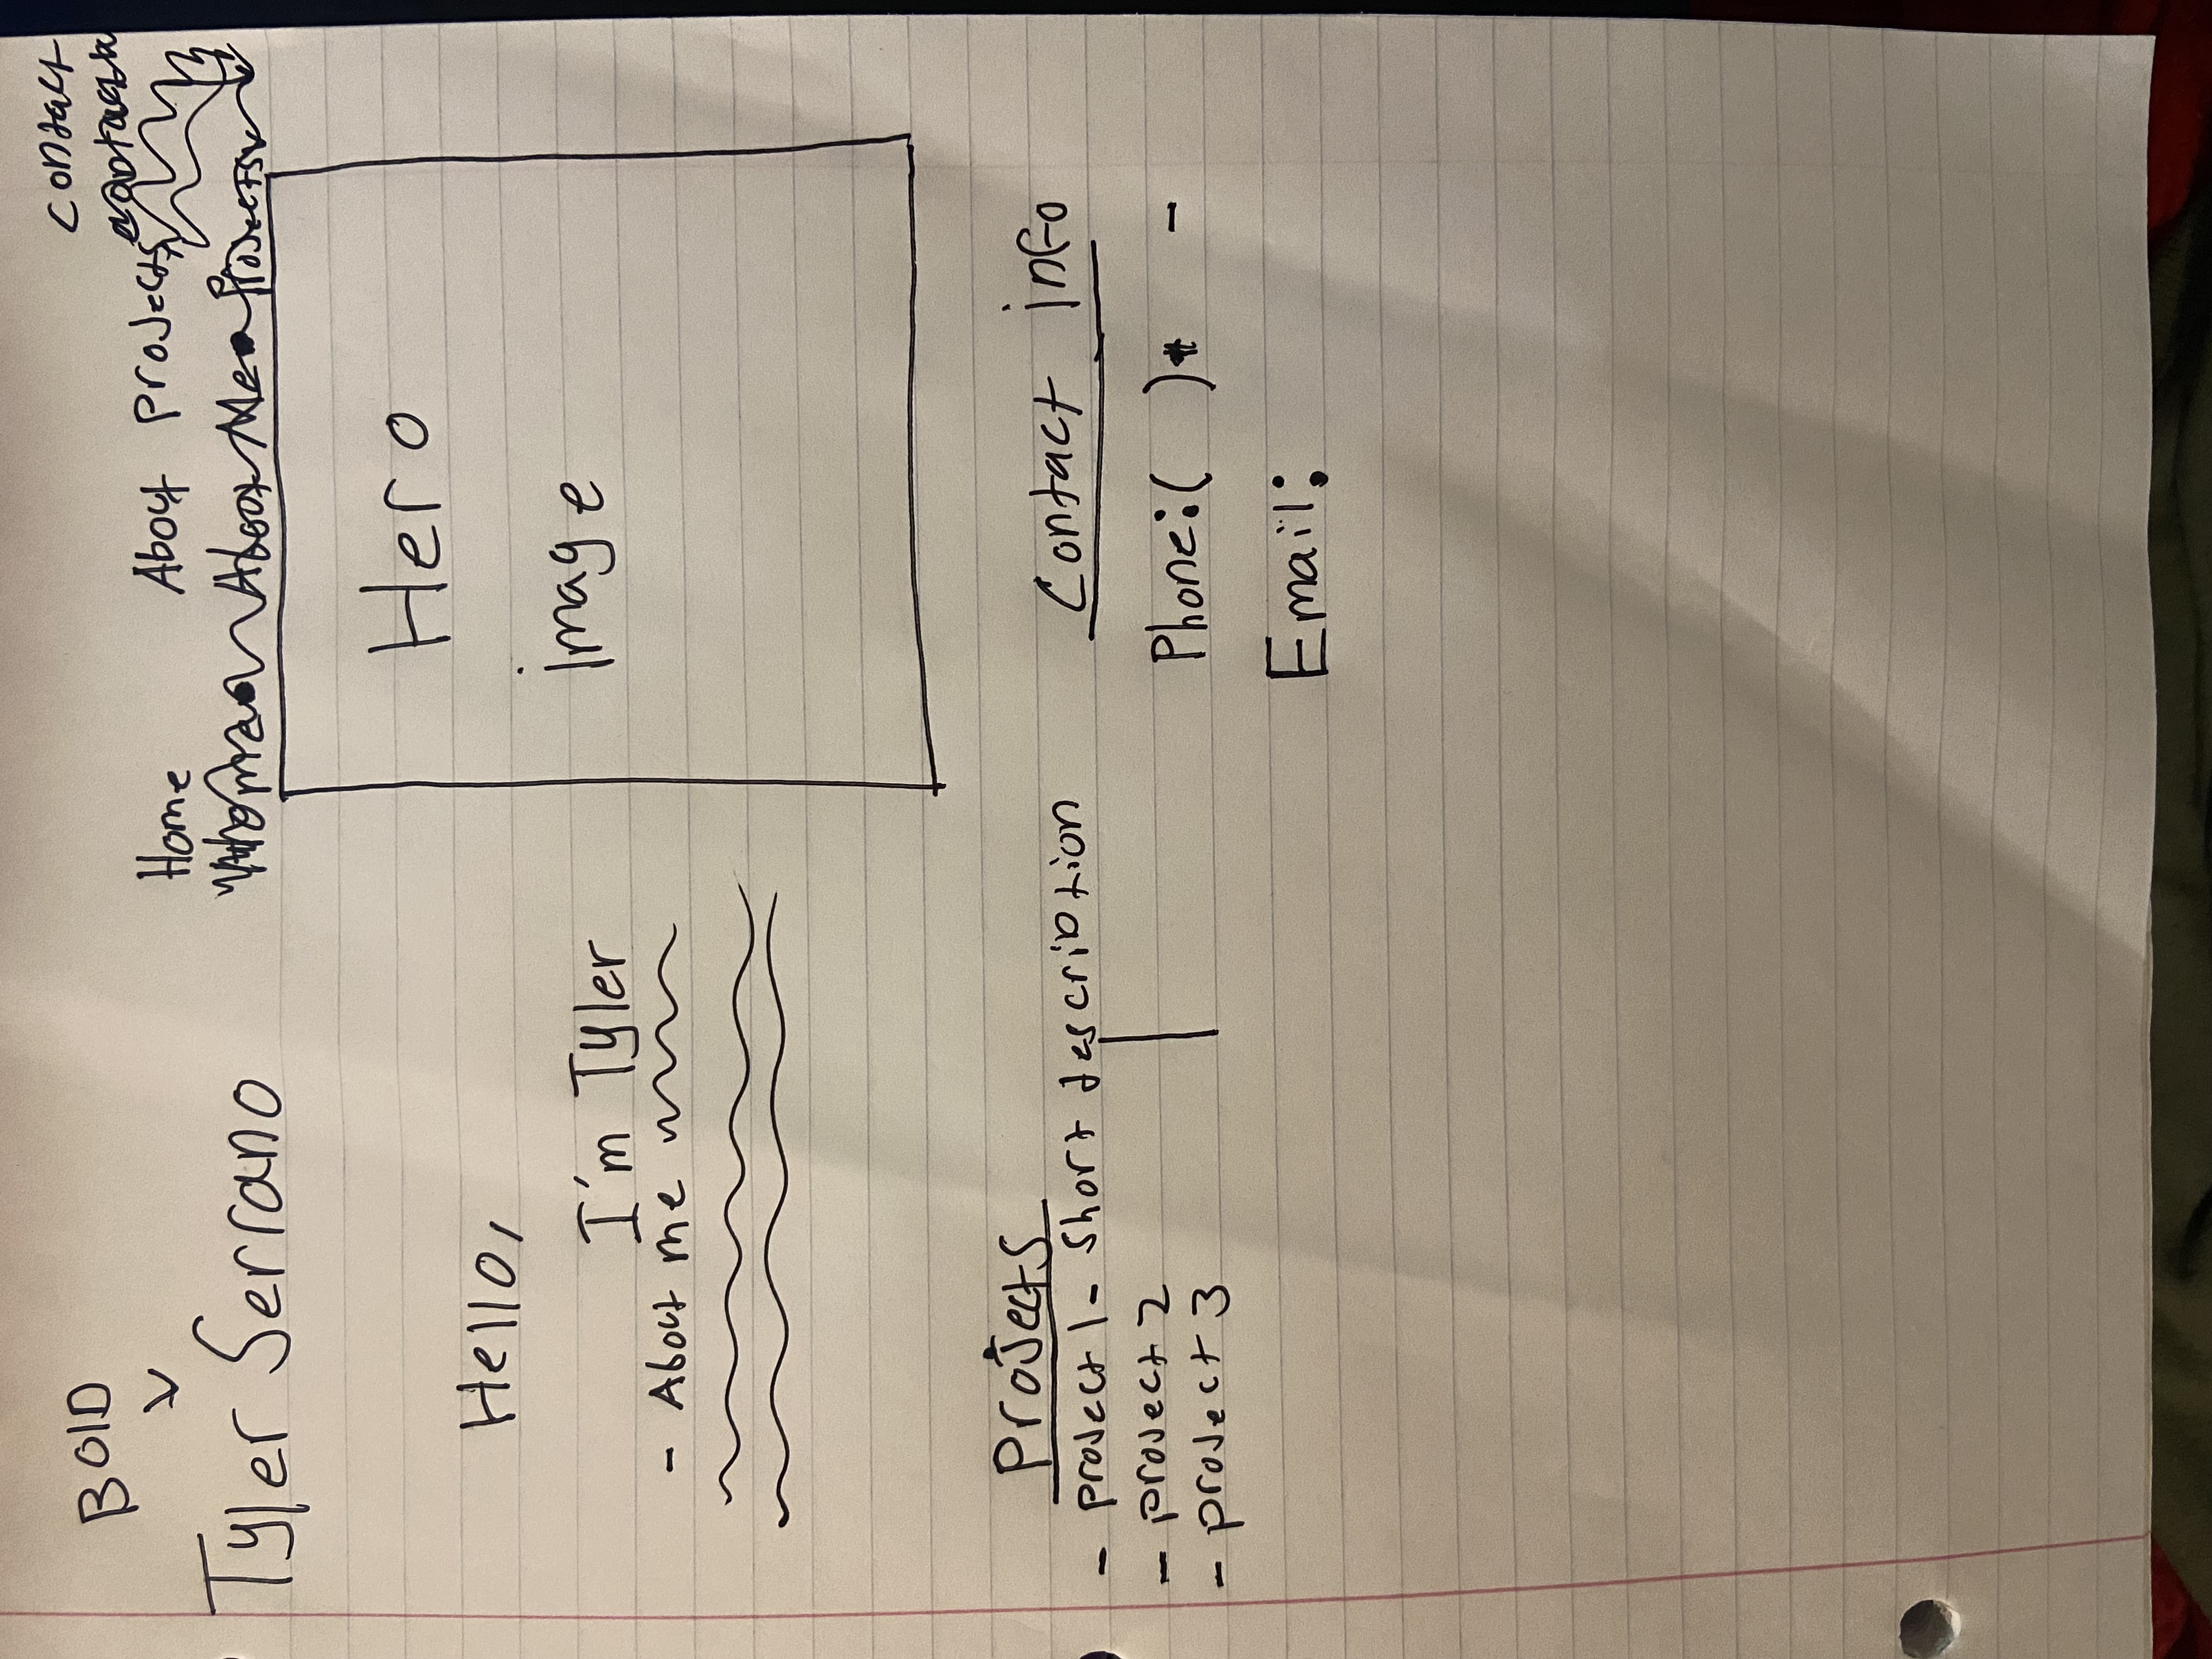 BOLD
Tyler Serrano
Contact
Home About Projects
Home About Me Projects
Hero
image
Hello,
I'm Tyler
- About me
Projects
- Project 1 - Short describtion
- Project 2
- project 3
Contact info
Phone: ( ) -
Email: